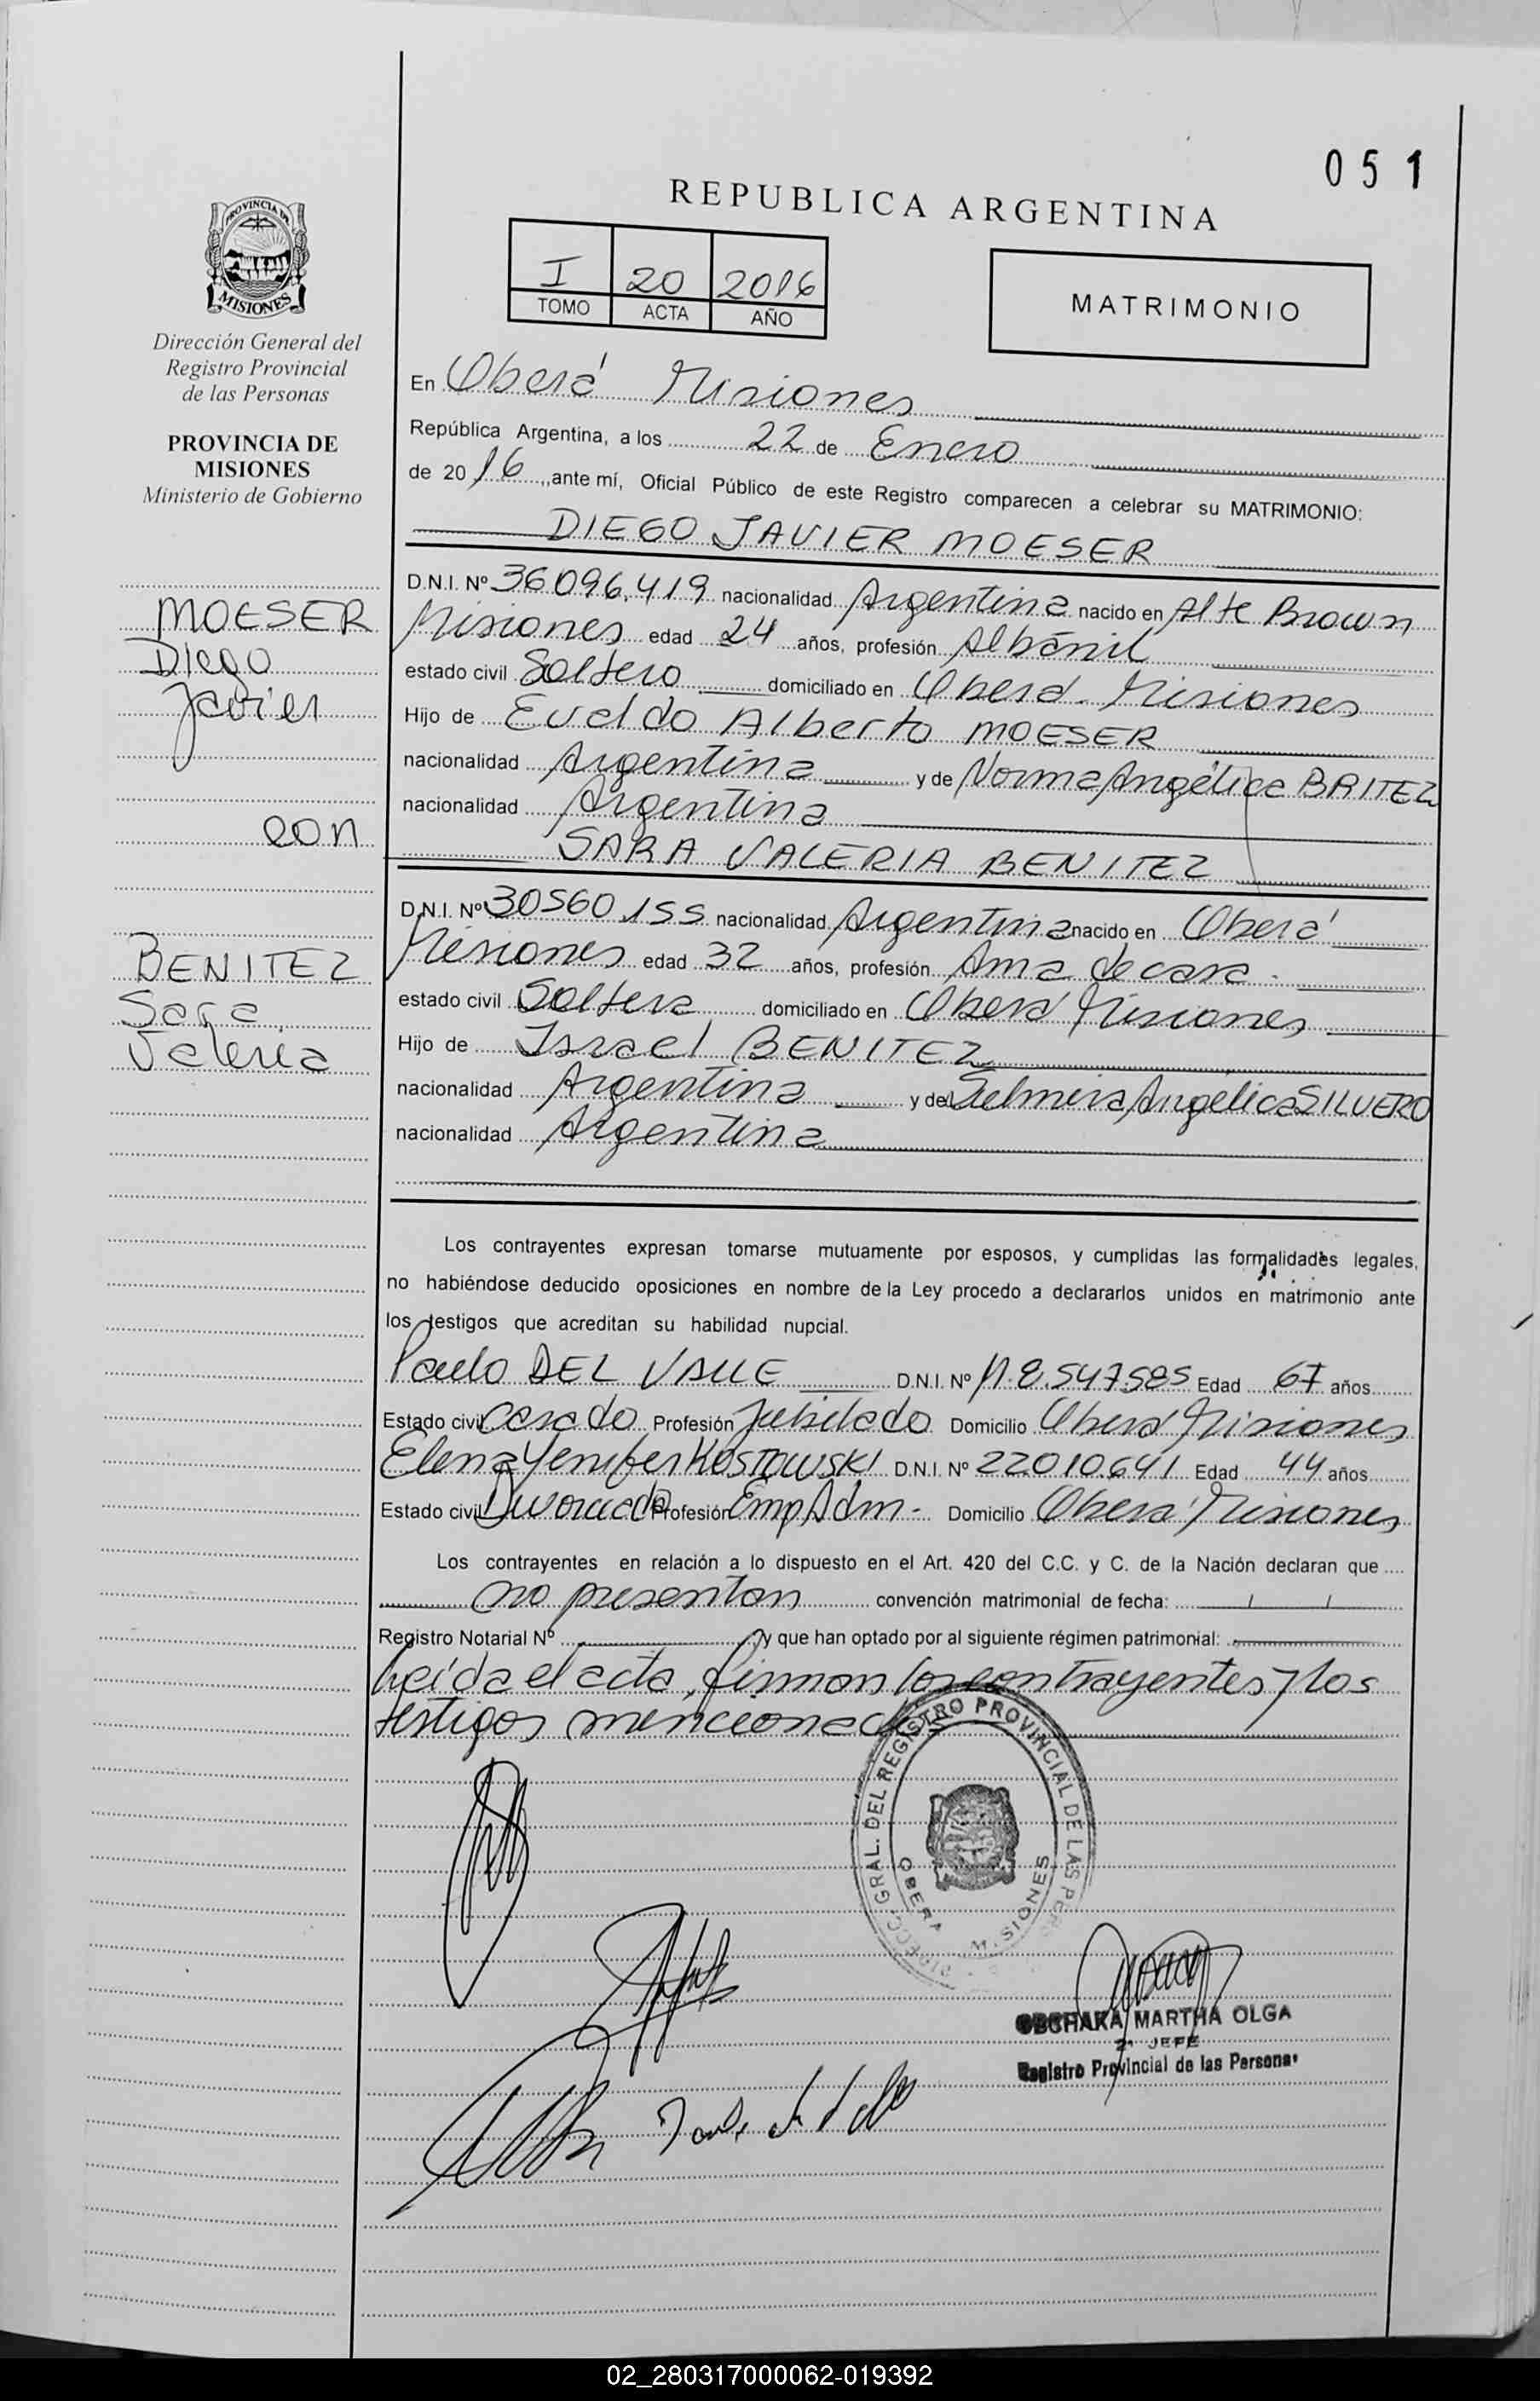 051
REPUBLICA ARGENTINA
PROVINCIA DE
MISIONES
I 20 2016
TOMO ACTA AÑO
MATRIMONIO
Dirección General del
Registro Provincial
de las Personas
PROVINCIA DE
MISIONES
Ministerio de Gobierno
En Oberá Misiones
República Argentina, a los 22 de Enero
de 2016, ante mí, Oficial Público de este Registro comparecen a celebrar su MATRIMONIO:
DIEGO JAVIER MOESER
MOESER
Diego
Javier
con
BENITEZ
Sara
Valeria
D.N.I. Nº 36.096.419 nacionalidad Argentina nacido en Alte Brown
Misiones edad 24 años, profesión Albánil
estado civil Soltero domiciliado en Oberá - Misiones
Hijo de Eveldo Alberto MOESER
nacionalidad Argentina y de Norma Angélica BRITEZ
nacionalidad Argentina
SARA VALERIA BENITEZ
D.N.I. Nº 30560.155 nacionalidad Argentina nacido en Oberá
Misiones edad 32 años, profesión Ama de casa.
estado civil Soltera domiciliado en Oberá Misiones
Hijo de Israel BENITEZ
nacionalidad Argentina y de Angélica SILVERO
nacionalidad Argentina
Los contrayentes expresan tomarse mutuamente por esposos, y cumplidas las formalidades legales,
no habiéndose deducido oposiciones en nombre de la Ley procedo a declararlos unidos en matrimonio ante
los testigos que acreditan su habilidad nupcial.
Paulo DEL VALLE D.N.I. Nº M.8.547.585 Edad 67 años
Estado civil Casado Profesión Jubilado Domicilio Oberá Misiones
Elena Yenifer KOSTOWSKI D.N.I. Nº 22.010.641 Edad 44 años
Estado civil Divorciada Profesión Emp Adm- Domicilio Oberá Misiones
Los contrayentes en relación a lo dispuesto en el Art. 420 del C.C. y C. de la Nación declaran que
no presentan convención matrimonial de fecha: / /
Registro Notarial Nº y que han optado por al siguiente régimen patrimonial:
Leída el acta, firman los contrayentes y los
testigos mencionados
DIRECC. GRAL. DEL REGISTRO PROVINCIAL DE LAS PERS
OBERA MISIONES
MARTHA OLGA
2º JEFE
Registro Provincial de las Personas
02_280317000062-019392